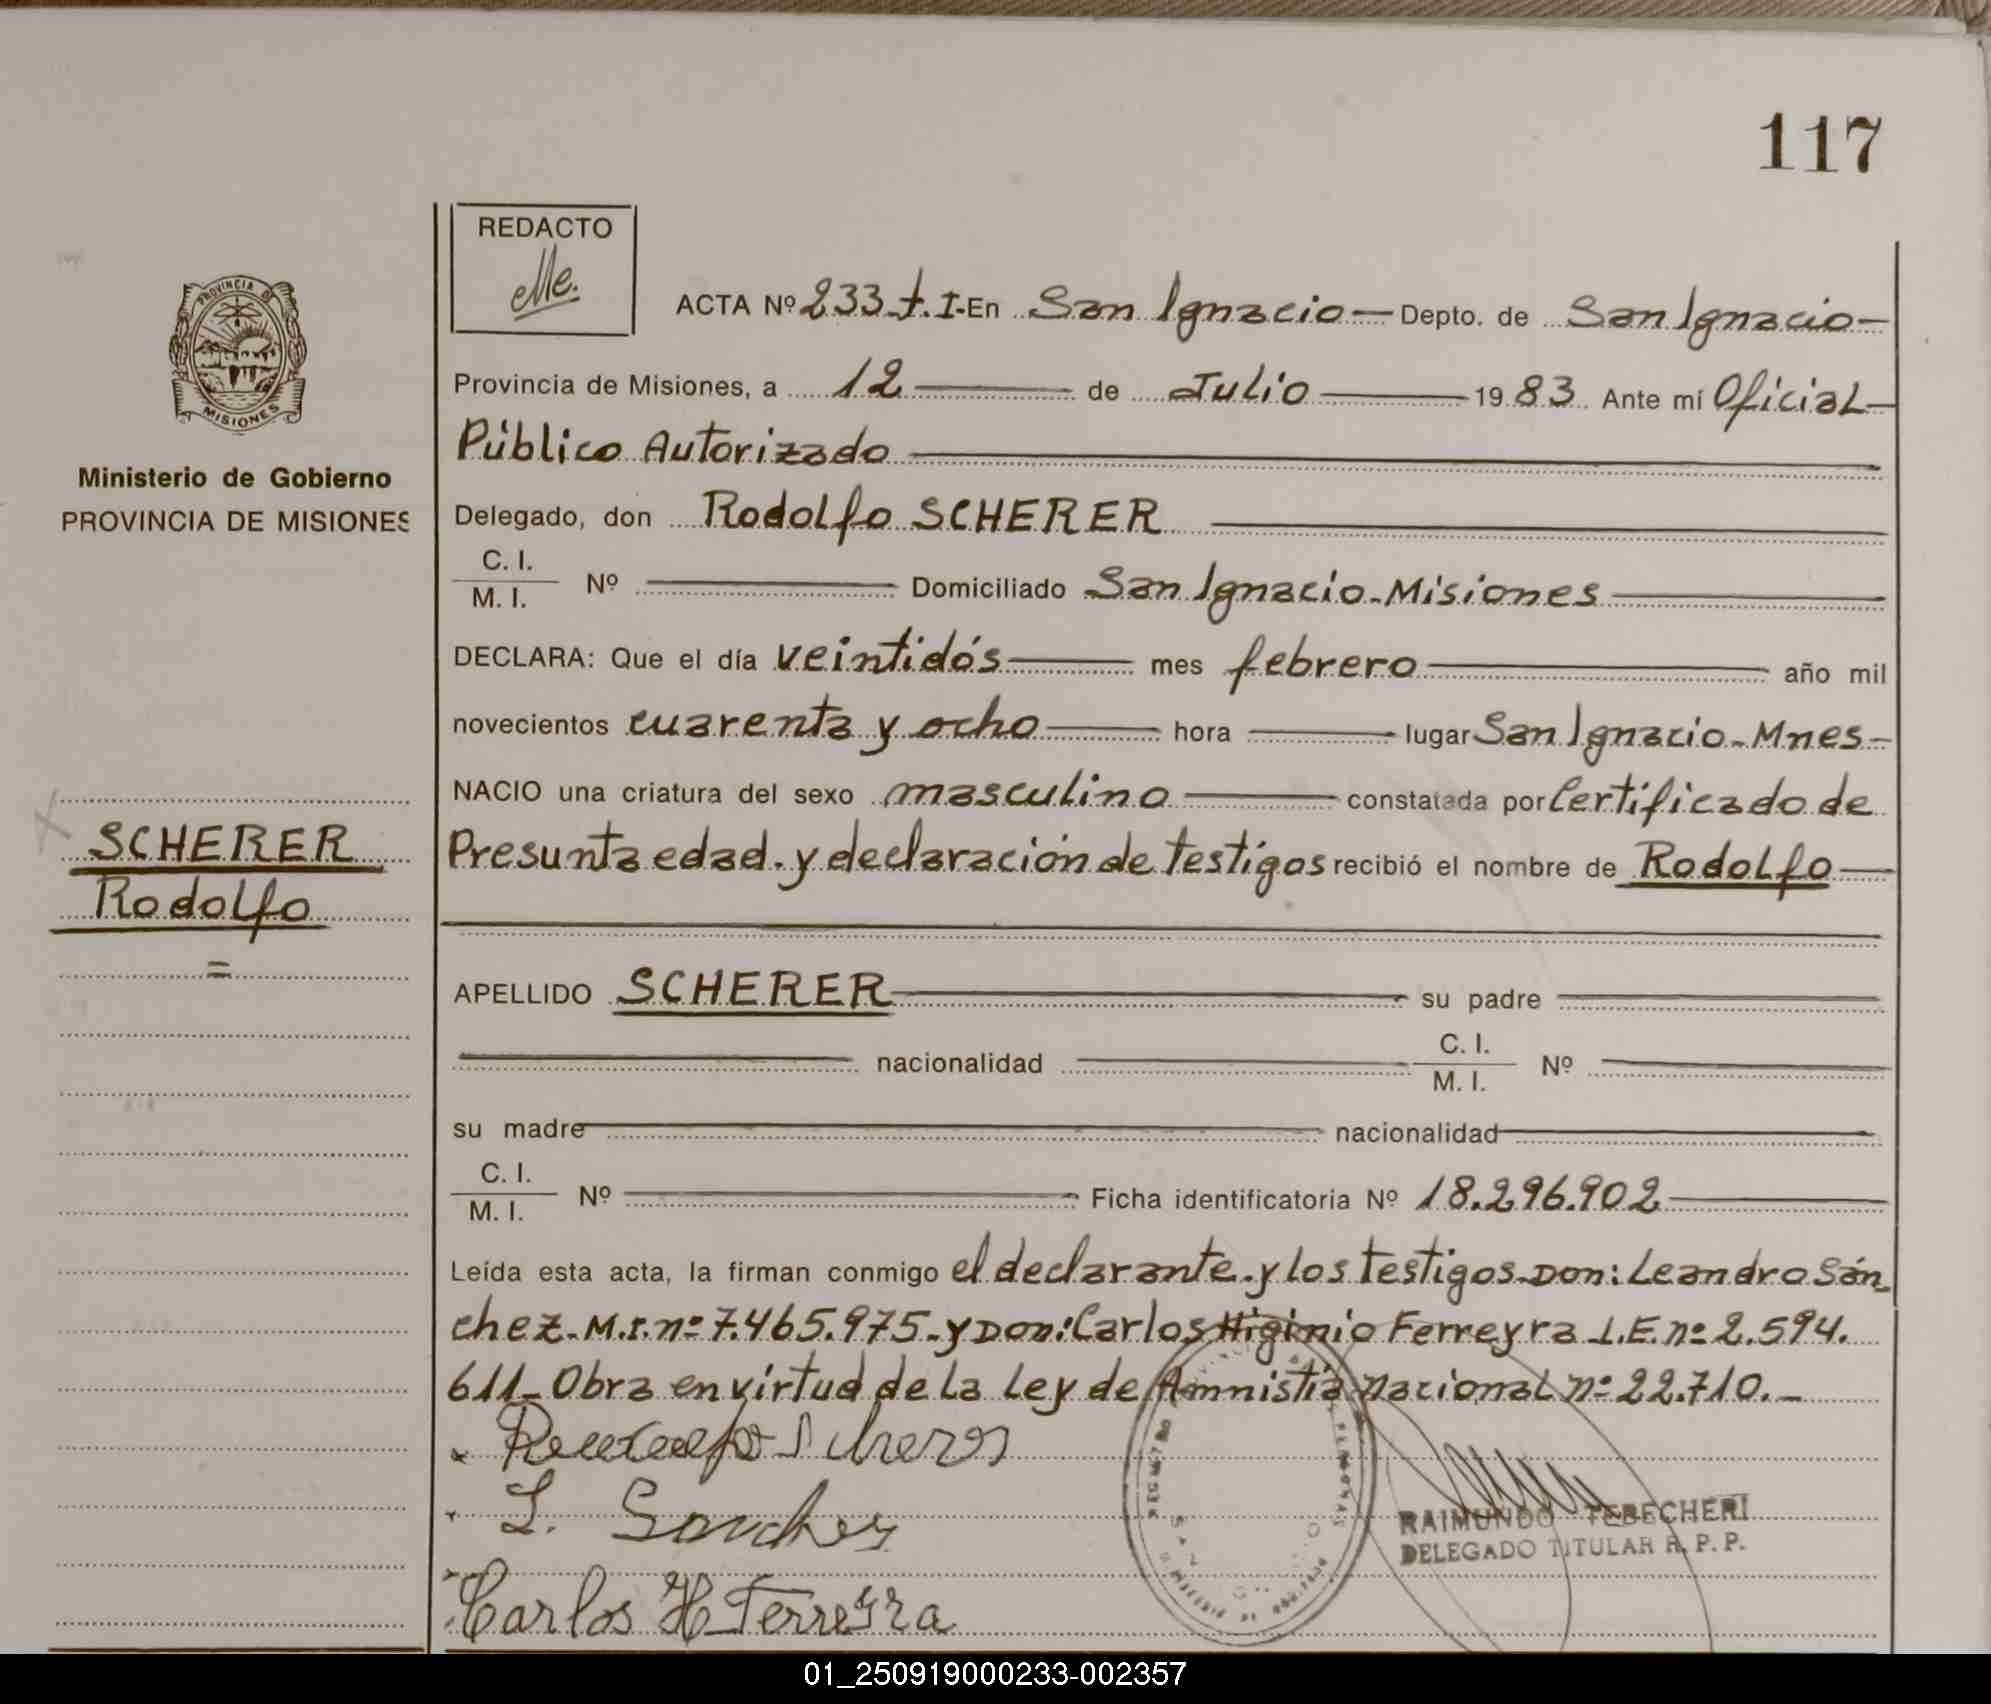 117
REDACTO
Me.
ACTA Nº 233.t.I-En San Ignacio — Depto. de San Ignacio —
Provincia de Misiones, a 12 de Julio 1983. Ante mí Oficial
Público Autorizado
Delegado, don Rodolfo SCHERER
C. I.
M. I. Nº Domiciliado San Ignacio-Misiones
DECLARA: Que el día veintidós mes febrero año mil
novecientos cuarenta y ocho hora lugar San Ignacio-Mnes-
NACIO una criatura del sexo masculino constatada por Certificado de
Presunta edad. y declaración de testigos recibió el nombre de Rodolfo
APELLIDO SCHERER su padre
nacionalidad C. I.
M. I. Nº
su madre nacionalidad
C. I.
M. I. Nº Ficha identificatoria Nº 18.296.902
Leída esta acta, la firman conmigo el declarante.y los testigos.Don: Leandro Sán
chez-M.I.nº 7.465.975-y Don: Carlos Higinio Ferreyra L.E.nº 2.594.
611_Obra en virtud de la Ley de Amnistía Nacional nº 22.710.-
L. Sanchez
Carlos H Ferreyra
RAIMUNDO TEBECHERI
DELEGADO TITULAR R. P. P.
PROVINCIA DE
MISIONES
Ministerio de Gobierno
PROVINCIA DE MISIONES
SCHERER
Rodolfo
=
01_250919000233-002357